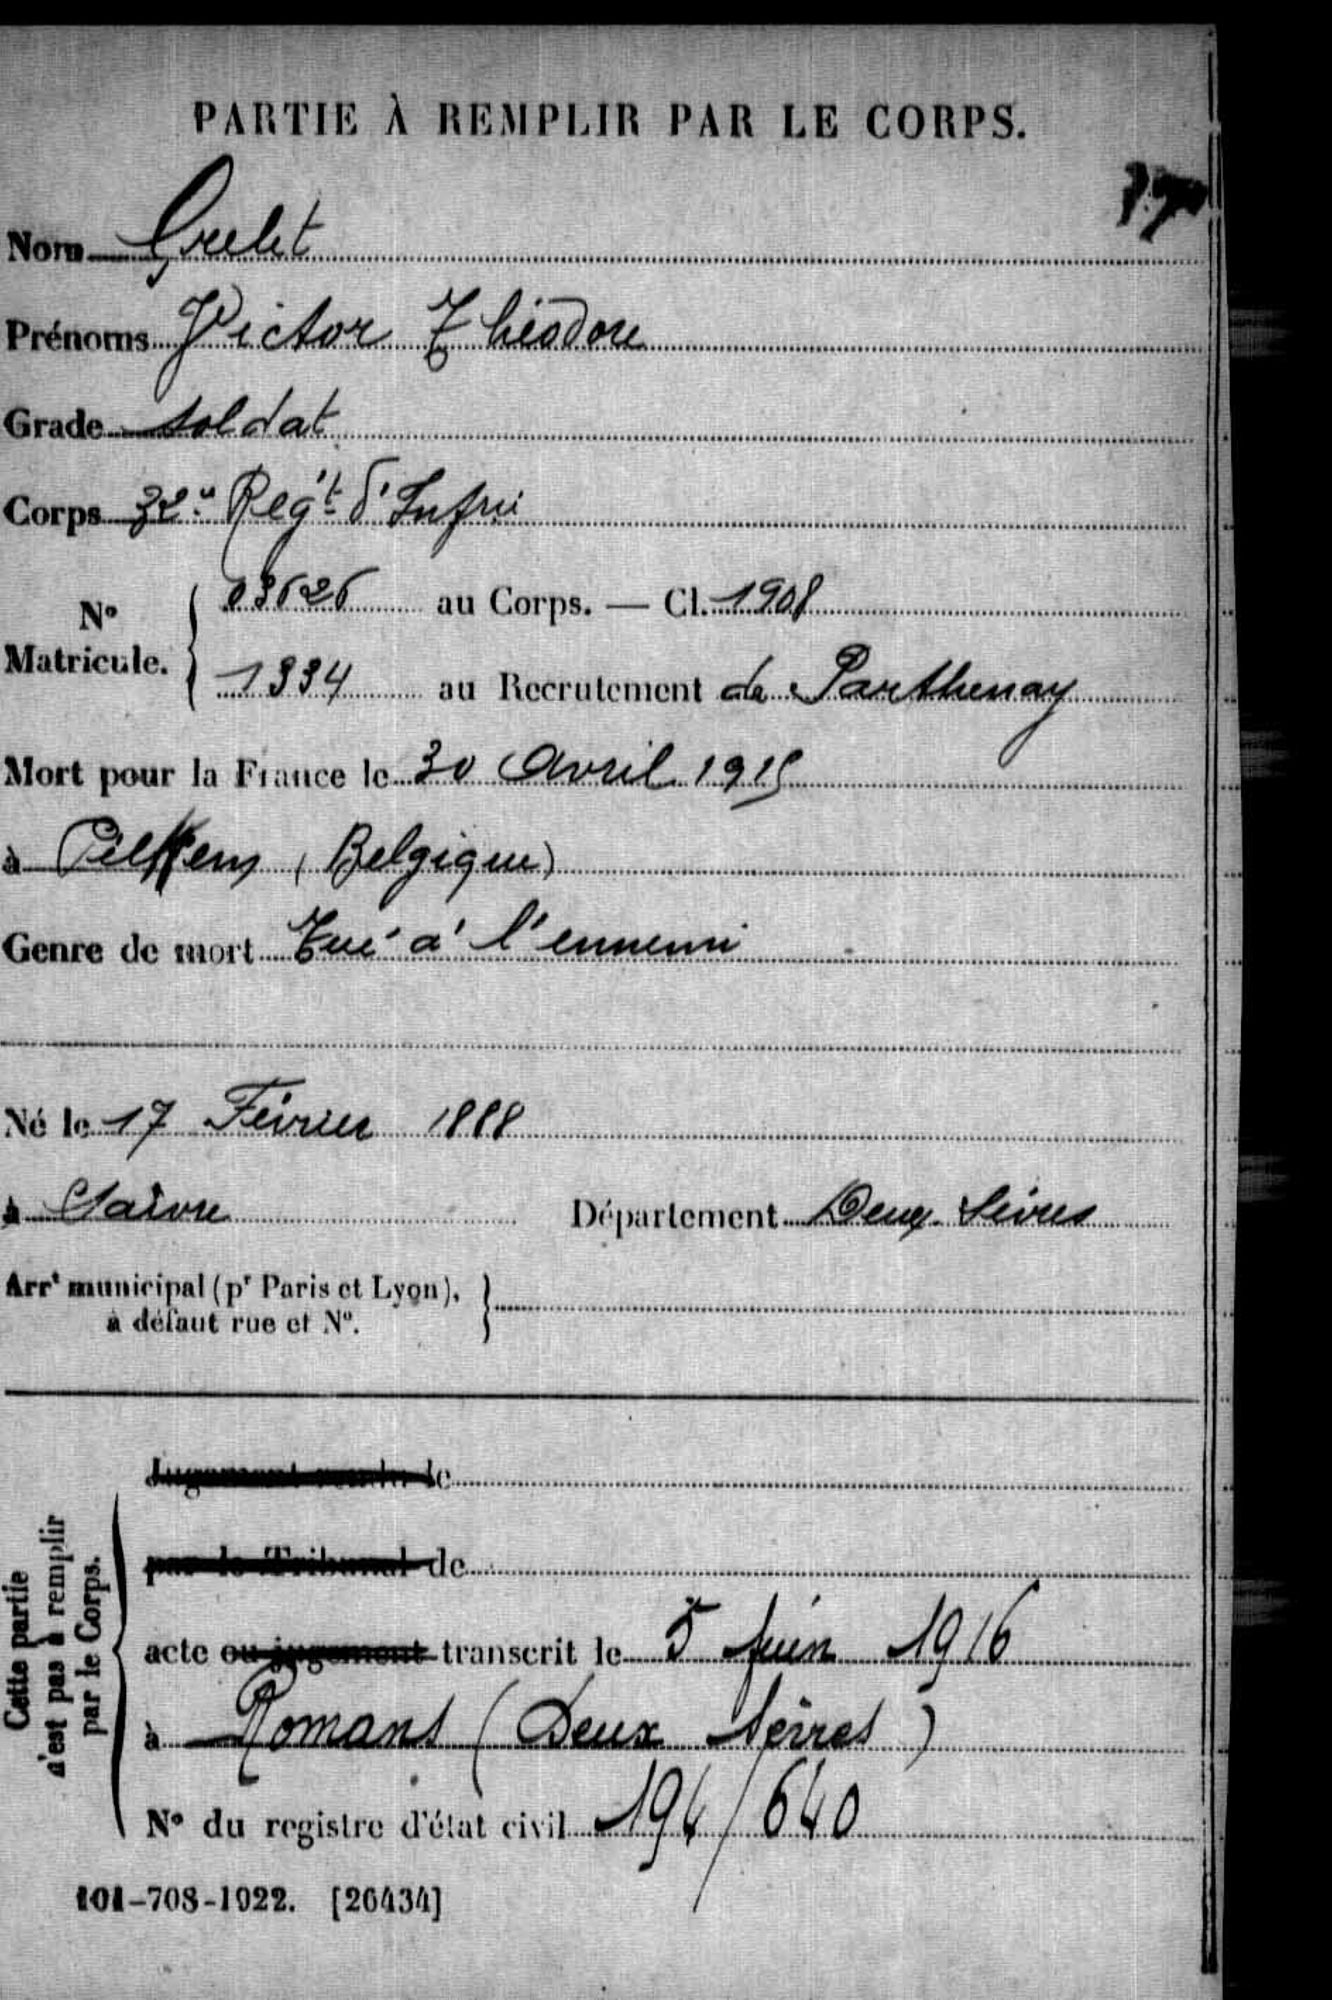 PARTIE À REMPLIR PAR LE CORPS.
Nom Grelet
Prénoms Victor Théodore
Grade soldat
Corps 32e Régt d'Infrie
N° Matricule. 03626 au Corps. — Cl. 1908
1334 au Recrutement de Parthenay
Mort pour la France le 30 Avril 1915
à Pilkem (Belgique)
Genre de mort Tué à l'ennemi
Né le 17 Février 1888
à Saivre Département Deux Sèvres
Arrt municipal (pr Paris et Lyon),
à défaut rue et N°.
Cette partie
n'est pas à remplir
par le Corps.
Jugement rendu le
par le Tribunal de
acte ou jugement transcrit le 5 Juin 1916
à Romans (Deux Sèvres)
N° du registre d'état civil 194/640
101-708-1922. [26434]